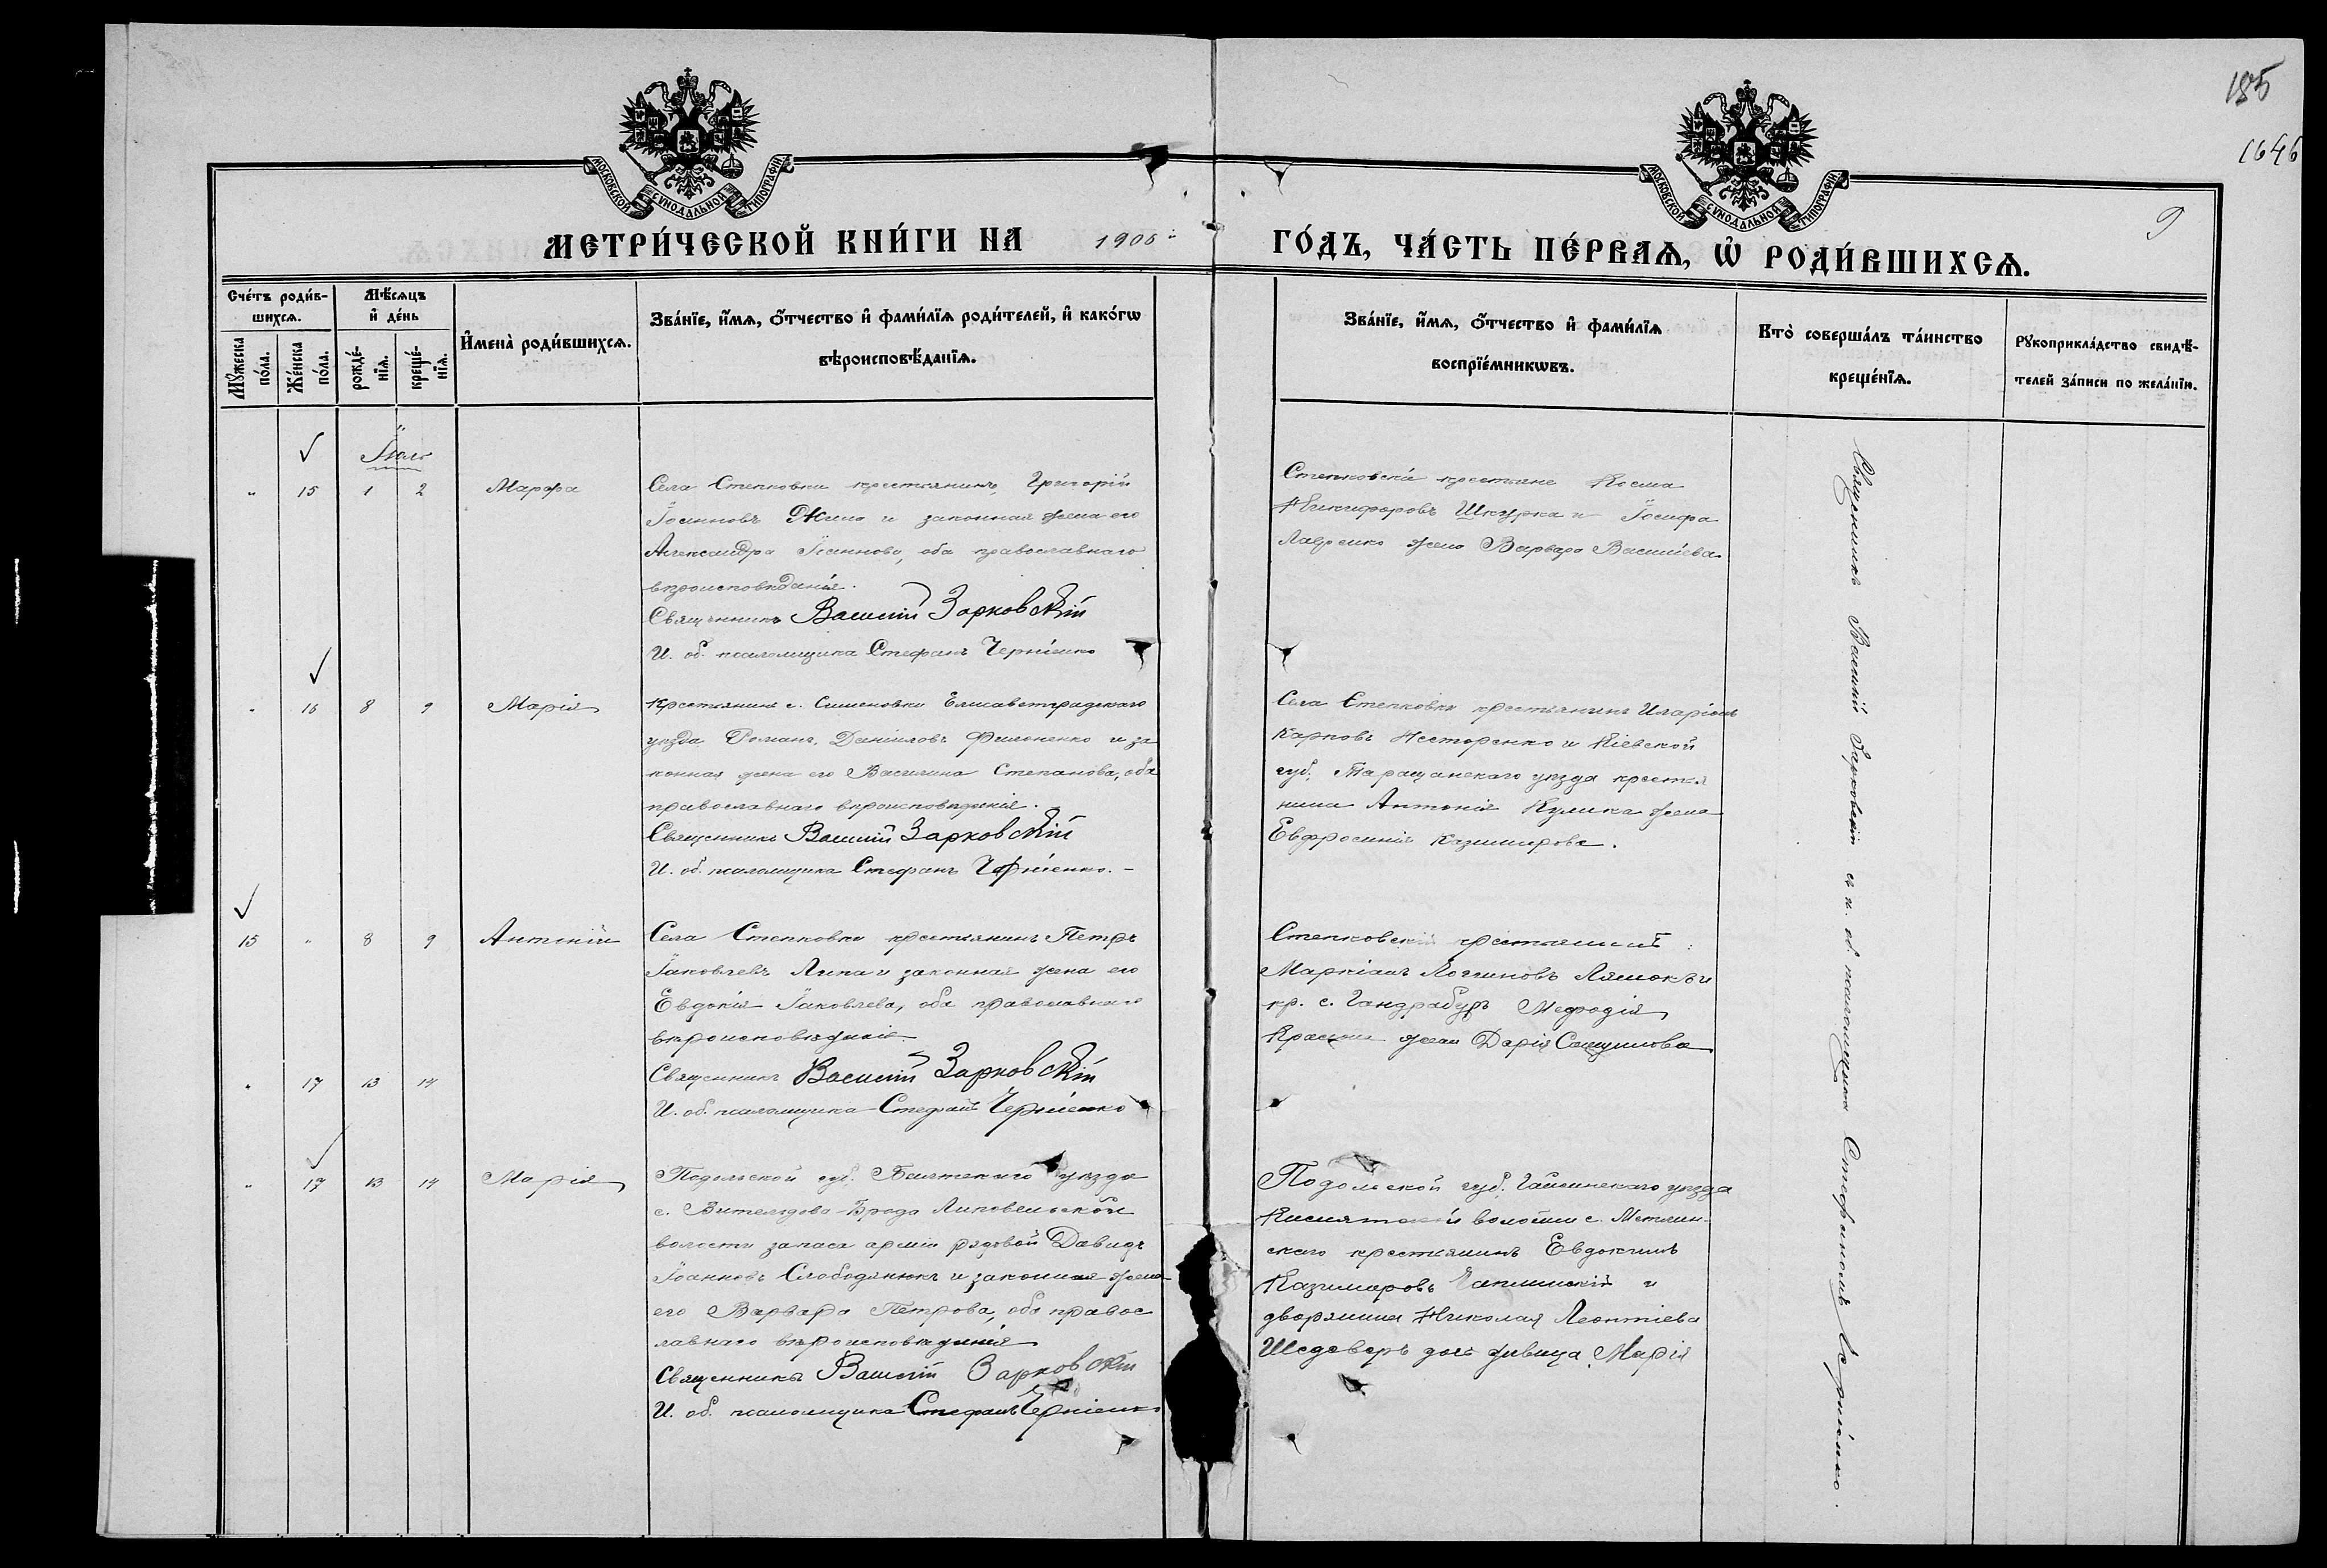 185
1646
9
МОСКОВСКОЙ СУНОДАЛЬНОЙ ТИПОГРАФІИ
МОСКОВСКОЙ СУНОДАЛЬНОЙ ТИПОГРАФІИ
МЕТРИ́ЧЕСКОЙ КНИ́ГИ НА 1905 ГО́ДЪ, ЧА́СТЬ ПЕ́РВАѦ, Ѡ҆ РОДИ́ВШИХСѦ.
Сче́тъ роди́в-
шихсѧ.
Мꙋ́жеска по́ла.
Же́нска по́ла.
Мѣ́сѧцъ
и҆ де́нь
рожде́-
нїѧ.
креще́-
нїѧ.
И҆мена̀ роди́вшихсѧ.
Зва́нїе, и҆́мѧ, ѻ҆́тчество и҆ фами́лїѧ роди́телей, и҆ како́гѡ
вѣроисповѣ́данїѧ.
Зва́нїе, и҆́мѧ, ѻ҆́тчество и҆ фами́лїѧ
воспрїе́мникѡвъ.
Кто̀ соверша́лъ та́инство
креще́нїѧ.
Рꙋкоприкла́дство свидѣ́-
телей за́писи по жела́нїю.
Іюль
" 15 1 2 Марѳа
Села Степковки крестьянинъ Григорій
Іоанновъ и законная жена его
Александра Іоаннова, оба православнаго
вѣроисповѣданія.
Священникъ Василій Зарковскій
И. об. псаломщика Стефанъ Черніенко
Степковскіе крестьяне Косма
Никифоровъ Шкурка и Іосифа
Лавренко жена Варвара Васильева
" 16 8 9 Марія
Крестьянинъ с. Семеновки Елисаветградскаго
уѣзда Романъ Даніиловъ Филоненко и за
конная жена его Василина Степанова, оба
православнаго вѣроисповѣданія.
Священникъ Василій Зарковскій
И. об. псаломщика Стефанъ Черніенко.
Села Степковки крестьянинъ Иларіонъ
Карповъ Несторенко и Кіевской
губ. Таращанскаго уѣзда крестья
нина Антонія Кулика жена
Евфросинія Казимирова.
15 " 8 9 Антоній
Села Степковки крестьянинъ Петръ
Іаковлевъ и законная жена его
Евдокія Іаковлева, оба православнаго
вѣроисповѣданія.
Священникъ Василій Зарковскій
И. об. псаломщика Стефанъ Черніенко
Степковскій крестьянинъ
Маркіанъ Логгиновъ и
кр. с. Гандрабуръ Меѳодія
жена Дарія
" 17 13 14
" 17 13 14 Марія
Подольской губ. Балтскаго уѣзда
с. Витолдова-Брода Липовеньской
волости запаса арміи рядовой Давидъ
Іоанновъ Слободянюкъ и законная жена
его Варвара Петрова, оба правос
лавнаго вѣроисповѣданія
Священникъ Василій Зарковскій
И. об. псаломщика Стефанъ Черніенко
Подольской губ. Гайсинскаго уѣзда
волости с. Метлин-
скаго крестьянинъ Евдокимъ
Казимировъ и
дворянина Николая Леонтіева
дочь дѣвица Марія
Священникъ Василій Зарковскій съ и. об. псаломщика Стефаномъ Черніенко.